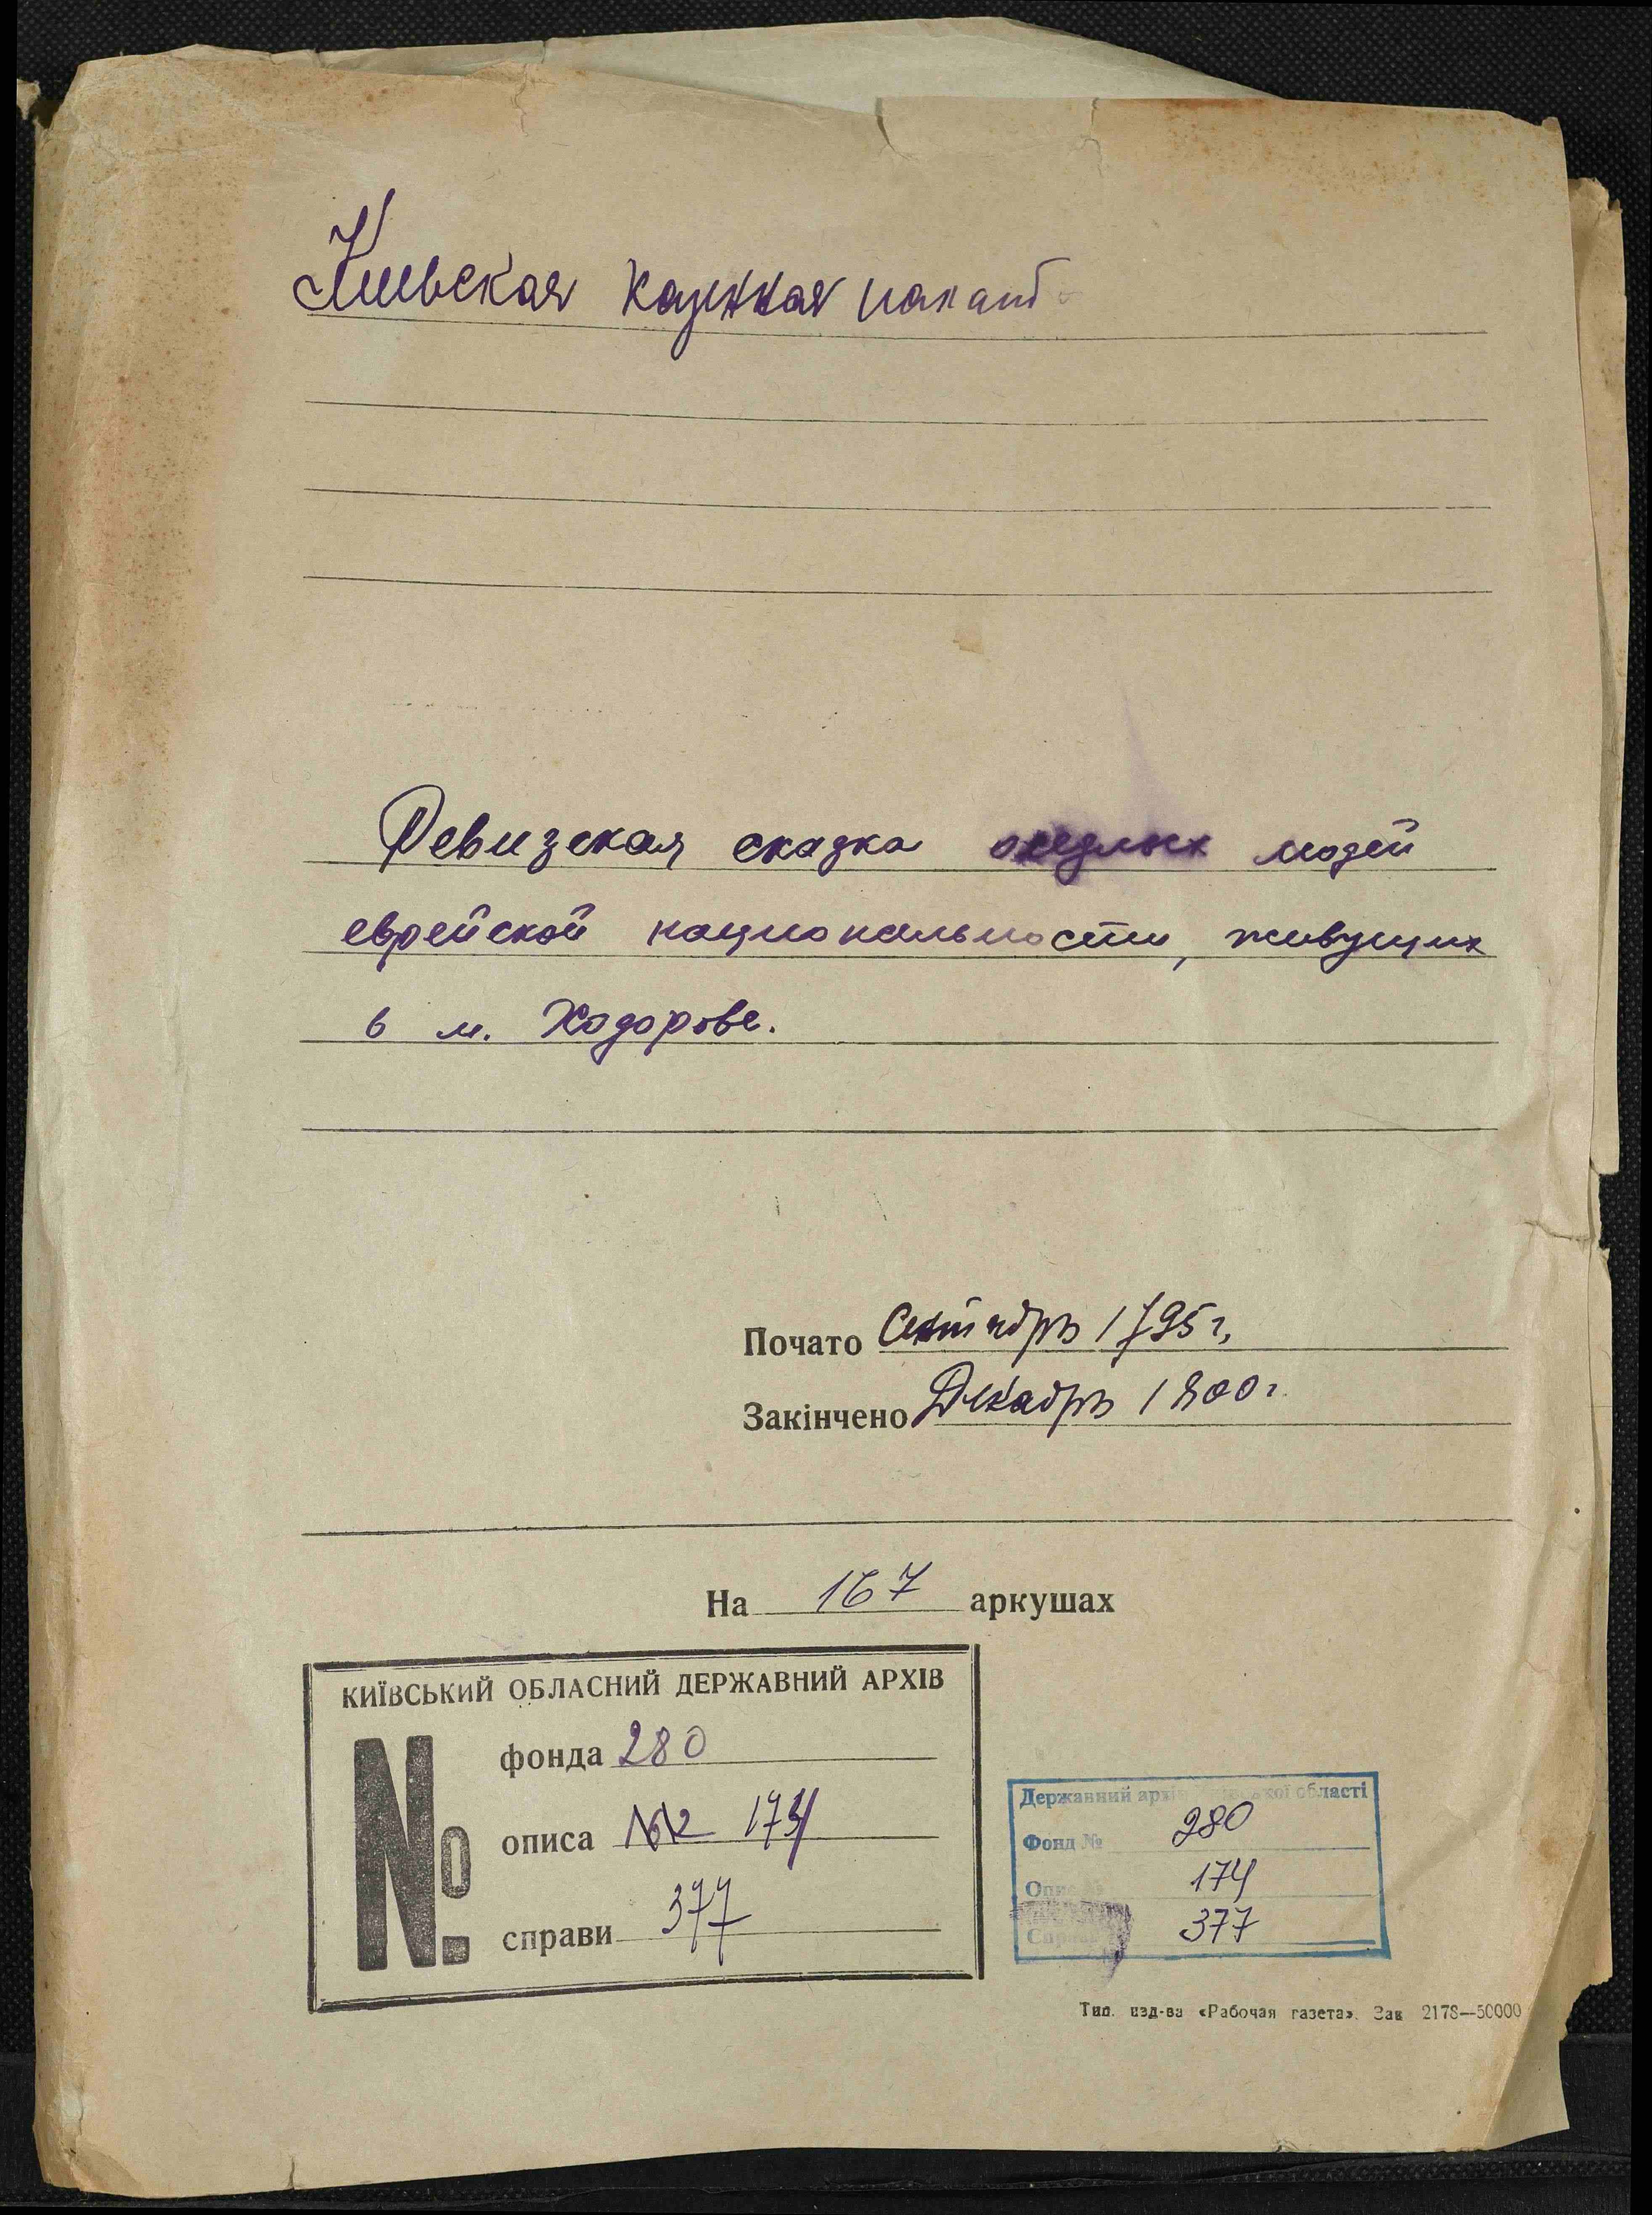 Киевская казенная палата
Ревизская сказка оседлых людей
еврейской национальности, живущих
в м. Ходорове.
Почато Сентябрь 1795 г,
Закінчено Декабрь 1800 г
На 167 аркушах
КИЇВСЬКИЙ ОБЛАСНИЙ ДЕРЖАВНИЙ АРХІВ
№
фонда 280
описа 174
справи 377
Державний архів Київської області
Фонд № 280
Опис № 174
Справа 377
Тип. изд-ва «Рабочая газета». Зак 2178—50000